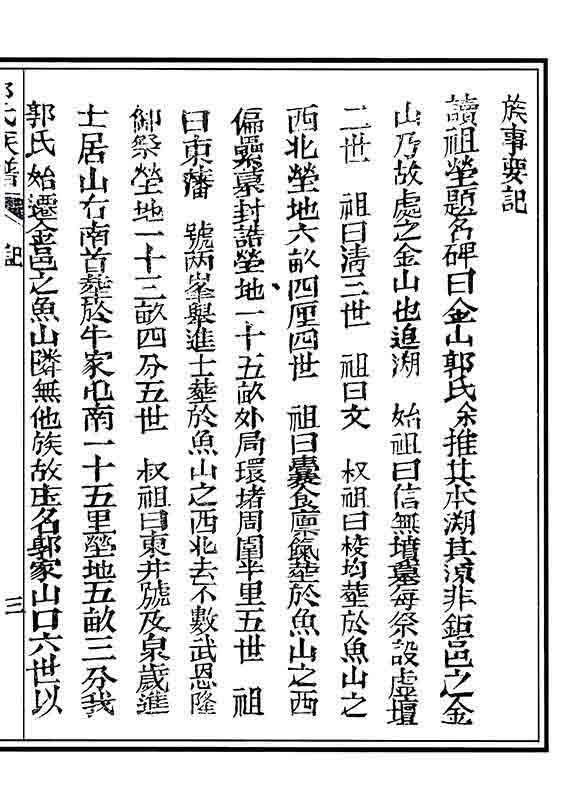 族事要記
讀祖塋題名碑曰金山郭氏余推其本溯其源非鉅邑之金
山乃故處之金山也追溯　始祖曰信無墳墓每祭設虛壇
二世　祖曰清三世　祖曰文　叔祖曰梭均葬於魚山之
西北塋地六畝四厘四世　祖曰囊食廪氣葬於魚山之西
偏纍蒙封誥塋地一十五畝外局環堵周圍半里五世　祖
曰東藩　號两峯舉進士葬於魚山之西北去不數武恩隆
御祭塋地一十三畝四分五世　叔祖曰東井號及泉歲進
士居山右南首葬於牛家屯南一十五里塋地五畝三分我
郭氏始遷金邑之魚山隣無他族故庄名郭家山口六世以
郭氏族譜　記　三